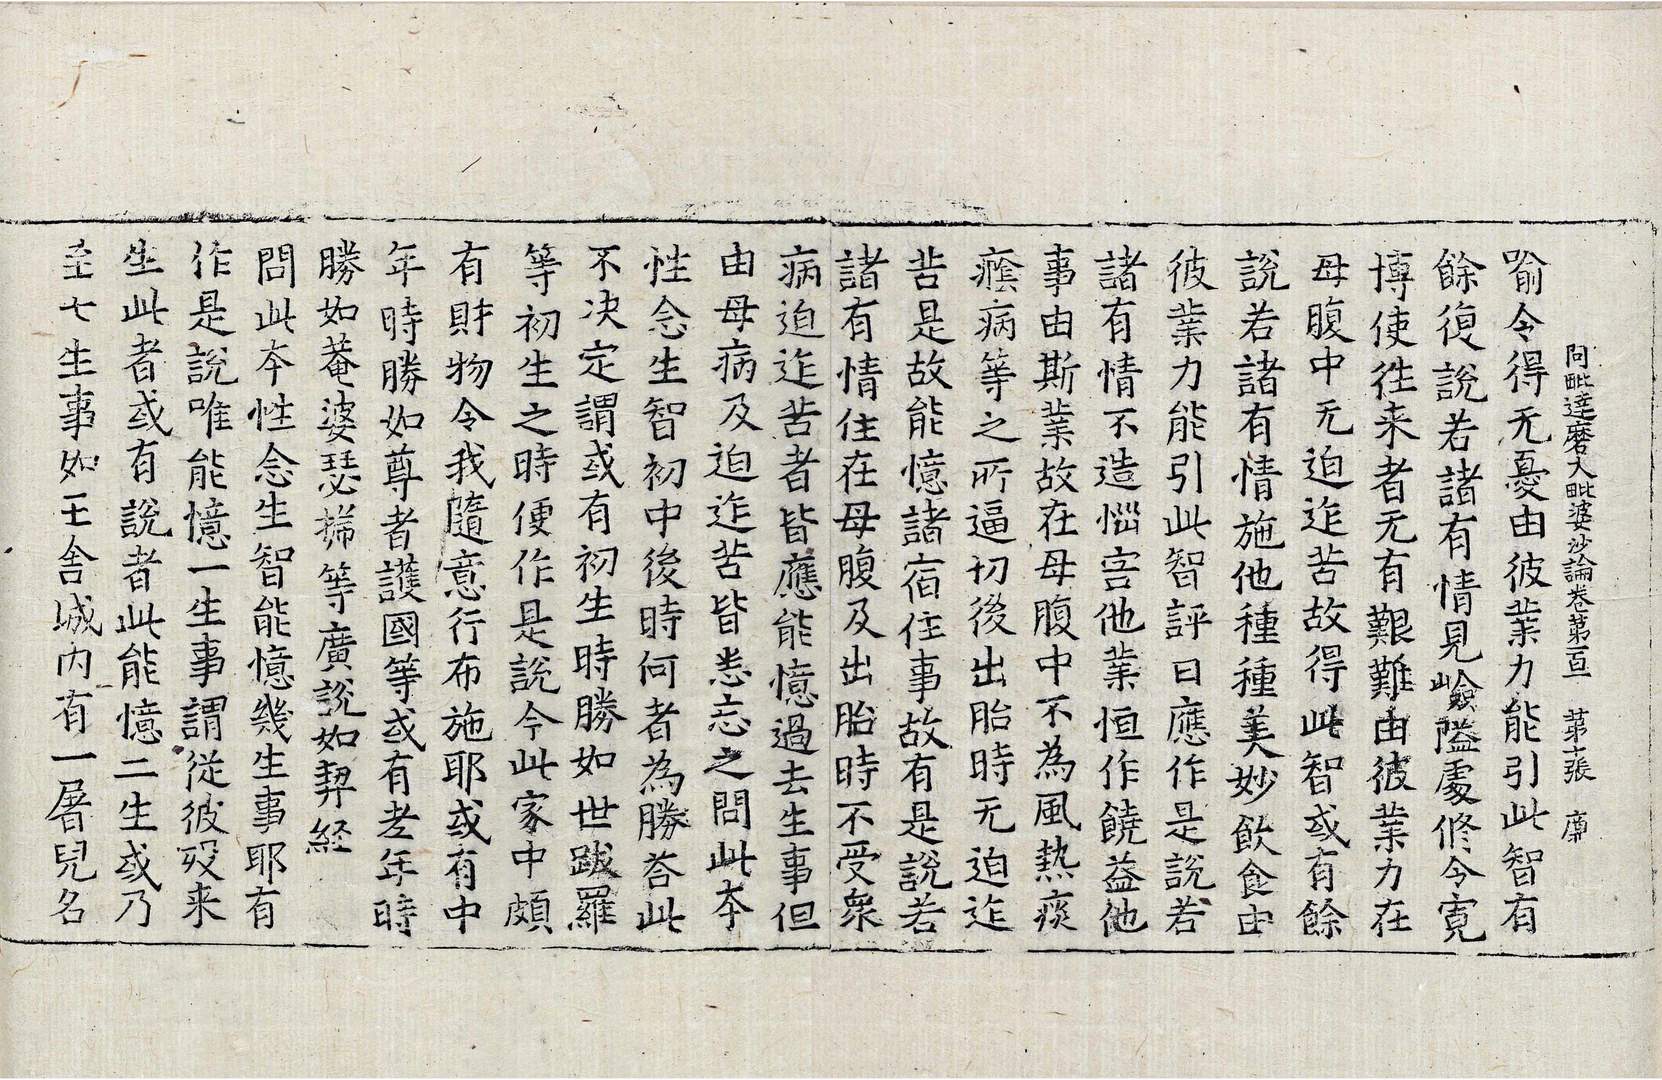 阿毗達磨大毗婆沙論卷第一百一 第七張 席
喻令得无憂由彼業力能引此智有
餘復說若諸有情見嶮隘處修令寬
博使往来者无有艱難由彼業力在
母腹中无迫迮苦故得此智或有餘
說若諸有情施他種種美妙飲食由
彼業力能引此智評曰應作是說若
諸有情不造惱害他業恒作饒益他
事由斯業故在母腹中不為風熱痰
癊病等之所逼切後出胎時无迫迮
苦是故能憶諸宿住事故有是說若
諸有情住在母腹及出胎時不受衆
病迫迮苦者皆應能憶過去生事但
由母病及迫迮苦皆悉忘之問此夲
性念生智初中後時何者為勝荅此
不决定謂或有初生時勝如世跋羅
等初生之時便作是說今此家中頗
有財物令我隨意行布施耶或有中
年時勝如尊者護國等或有老年時
勝如菴婆瑟㨒等廣說如契経
問此夲性念生智能憶幾生事耶有
作是說唯能憶一生事謂從彼歿来
生此者或有說者此能憶二生或乃
至七生事如王舍城內有一屠兒名